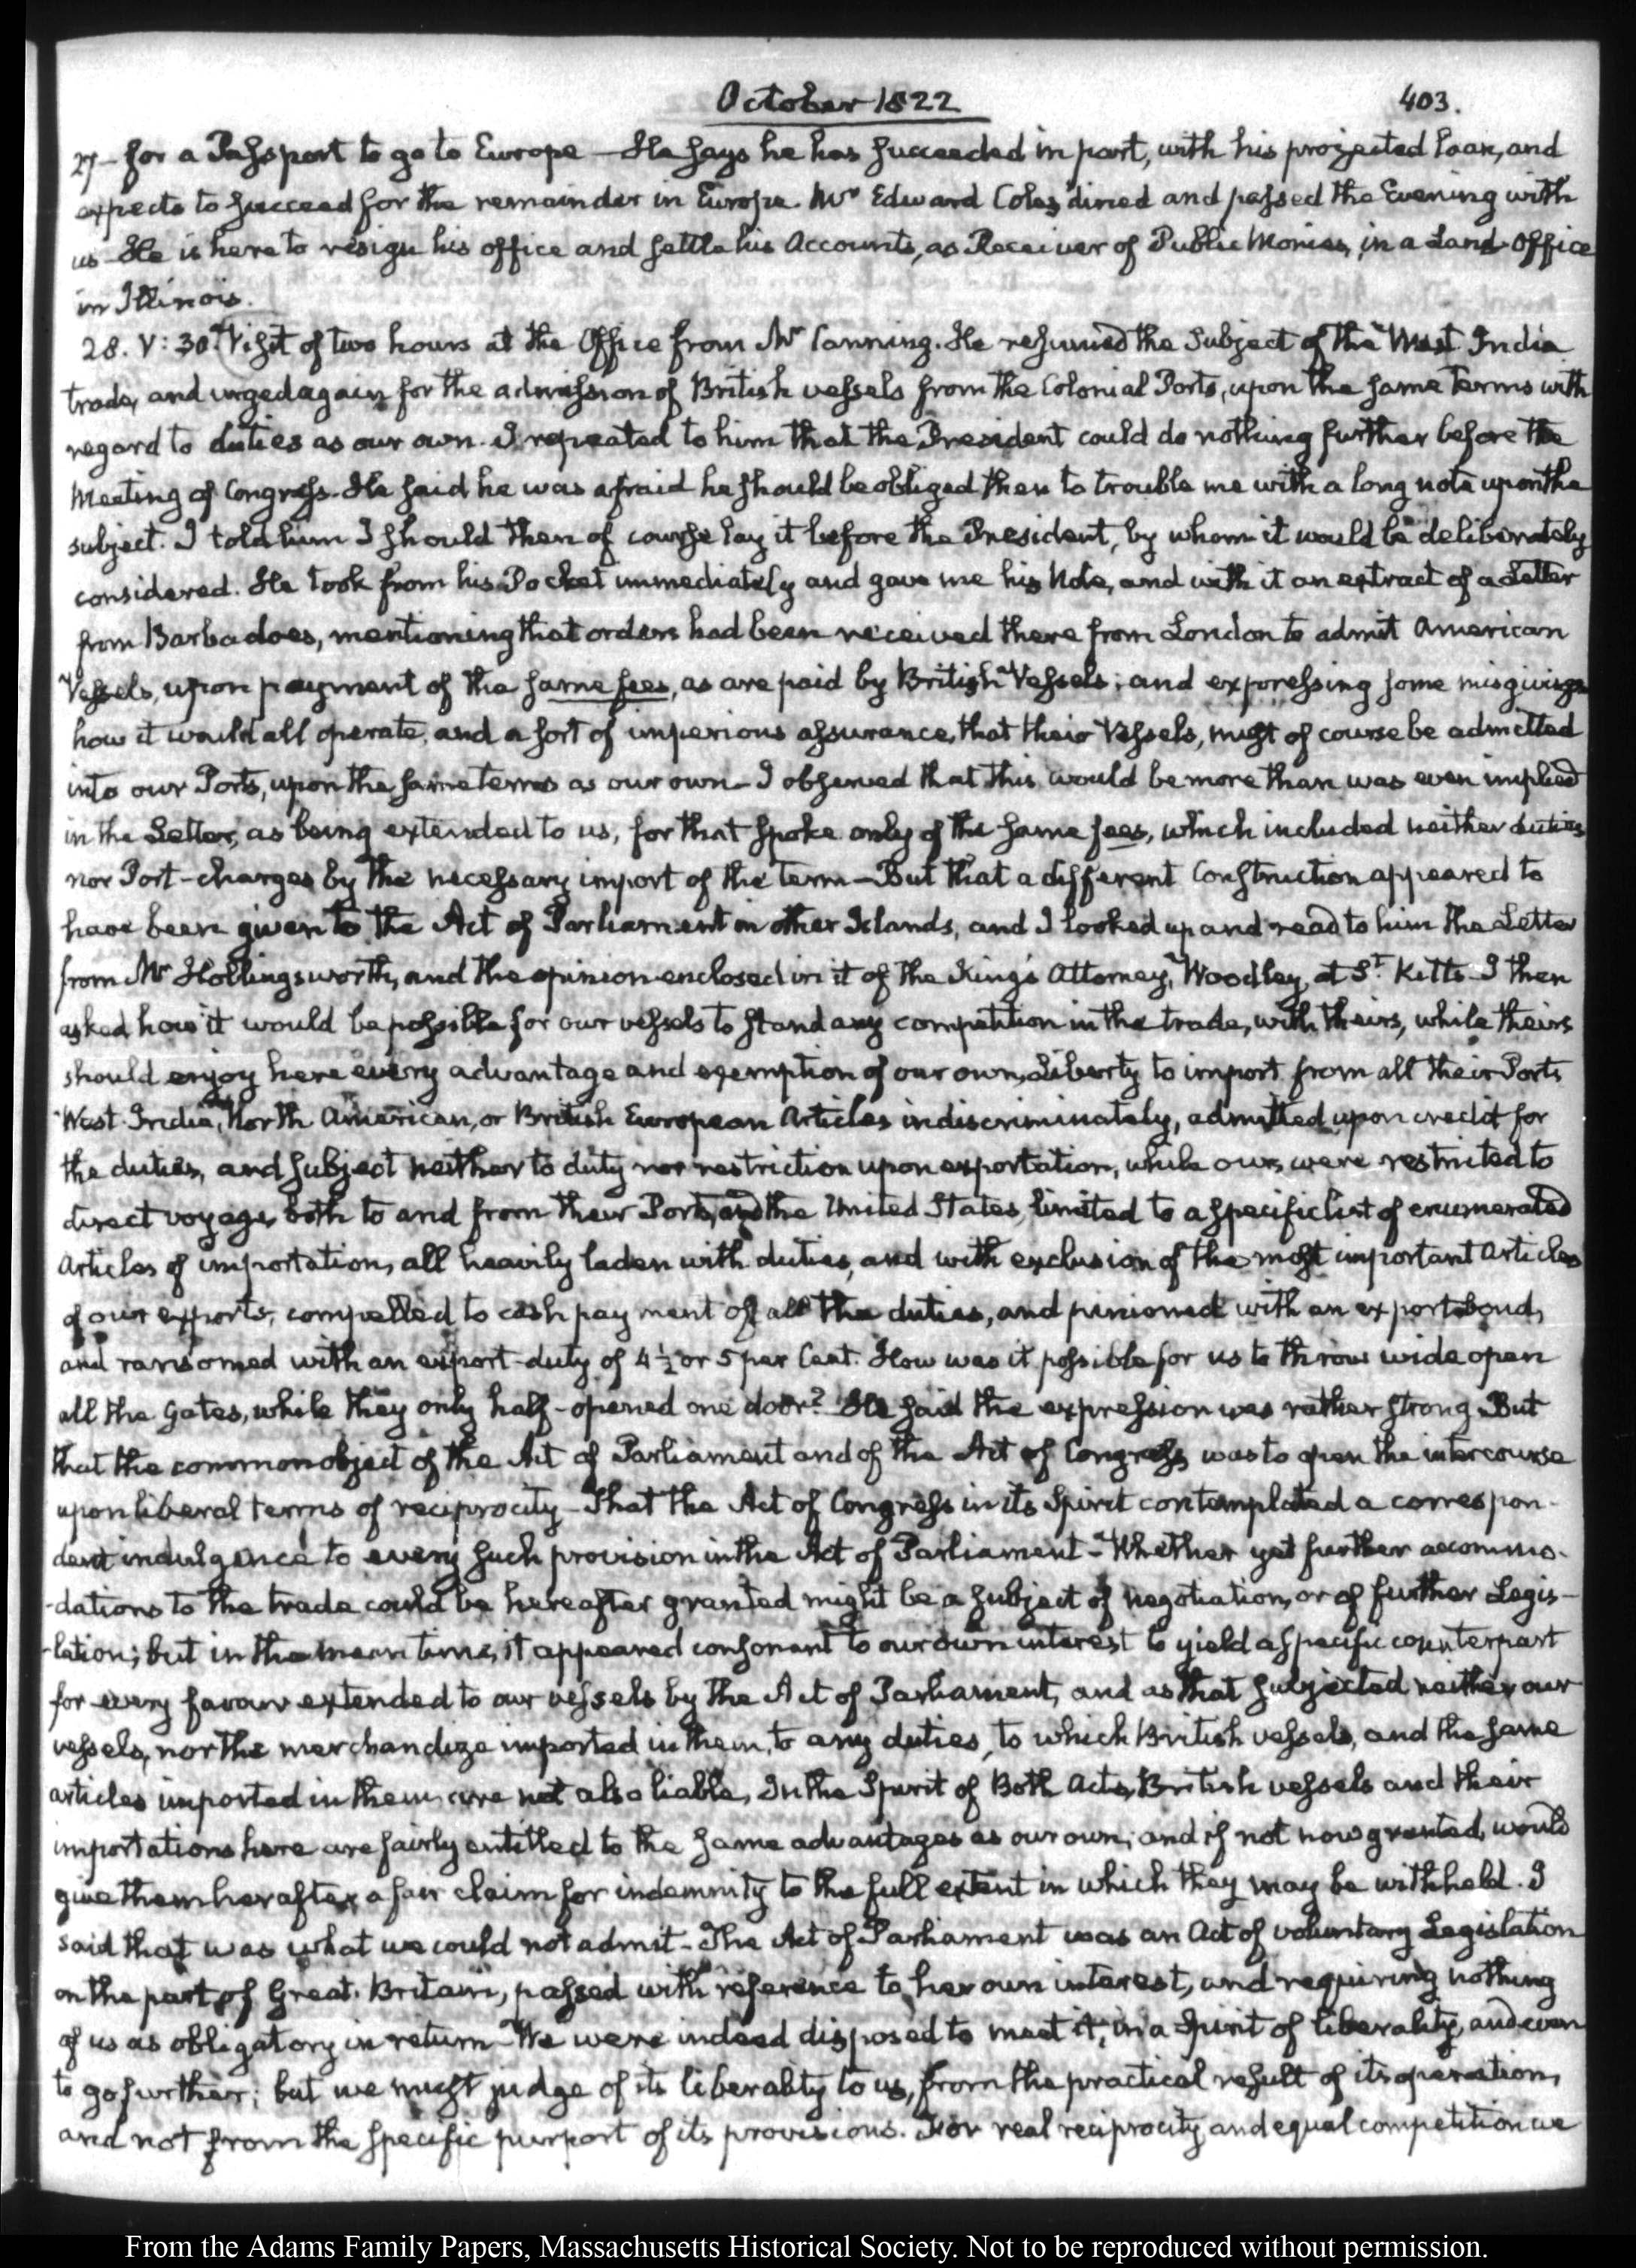 October 1822
403.
27– for a Passport to go to Europe – He says he has succeeded in part, with his projected Loan, and
expects to succeed for the remainder in Europe. Mr Edward Coles dined and passed the Evening with
us – He is here to resign his office and settle his Accounts, as Receiver of Public Monies, in a Land-Office
in Illinois.
28. V:30. Visit of two hours at the Office from Mr Canning. He resumed the Subject of the West-India
trade, and urged again for the admission of British vessels from the Colonial Ports, upon the same Terms with
regard to duties as our own. I repeated to him that the President could do nothing further before the
Meeting of Congress. He said he was afraid he should be obliged then to trouble me with a long note upon the
subject. I told him I should then of course lay it before the President, by whom it would be deliberately
considered. He took from his Pocket immediately and gave me his Note, and with it an extract of a Letter
from Barbadoes, mentioning that orders had been received there from London to admit American
Vessels, upon payment of the same fees, as are paid by British Vessels; and expressing some misgivings
how it would all operate, and a sort of imperious assurance, that their Vessels, must of course be admitted
into our Ports, upon the same terms as our own – I observed that this would be more than was even implied
in the Letter, as being extended to us, for that spoke only of the same fees, which included neither duties
nor Port-charges by the necessary import of the term – But that a different Construction appeared to
have been given to the Act of Parliament in other Islands, and I looked up and read to him the Letter
from Mr Hollingsworth, and the opinion enclosed in it of the King's Attorney, Woodley, at St. Kitts – I then
asked how it would be possible for our vessels to stand any competition in the trade, with theirs, while theirs
should enjoy here every advantage and exemption of our own, Liberty to import from all their Ports
West-India, North American, or British European Articles indiscriminately, admitted upon credit for
the duties, and subject neither to duty nor restriction upon exportation, while ours were restricted to
direct voyages both to and from their Ports, and the United States, limited to a specific list of enumerated
Articles of importation, all heavily laden with duties, and with exclusion of the most important Articles
of our exports, compelled to cash payment of all the duties, and pinioned with an export bond,
and ransomed with an export-duty of 4½ or 5 per Cent. How was it possible for us to throw wide open
all the Gates, while they only half-opened one door? He said the expression was rather strong. But
that the common object of the Act of Parliament and of the Act of Congress was to open the intercourse
upon liberal terms of reciprocity – That the Act of Congress in its Spirit contemplated a correspon-
dent indulgence to every such provision in the Act of Parliament – Whether yet further accommo-
-dations to the trade could be hereafter granted might be a subject of negotiation, or of further Legis-
-lation; but in the mean time, it appeared consonant to our own interest to yield a specific counterpart
for every favour extended to our vessels by the Act of Parliament, and as that subjected neither our
vessels, nor the merchandize imported in them, to any duties, to which British vessels, and the same
articles imported in them are not also liable, In the Spirit of Both Acts, British vessels and their
importations here are fairly entitled to the same advantages as our own; and if not now granted, would
give them herafter a fair claim for indemnity to the full extent in which they may be withheld. I
said that was what we could not admit – The Act of Parliament was an Act of voluntary Legislation
on the part of Great-Britain, passed with reference to her own interest, and requiring nothing
of us as obligatory in return – We were indeed disposed to meet it, in a Spirit of liberality, and even
to go further; but we must judge of its liberality to us, from the practical result of its operation,
and not from the specific purport of its provisions. For real reciprocity, and equal competition we
From the Adams Family Papers, Massachusetts Historical Society. Not to be reproduced without permission.